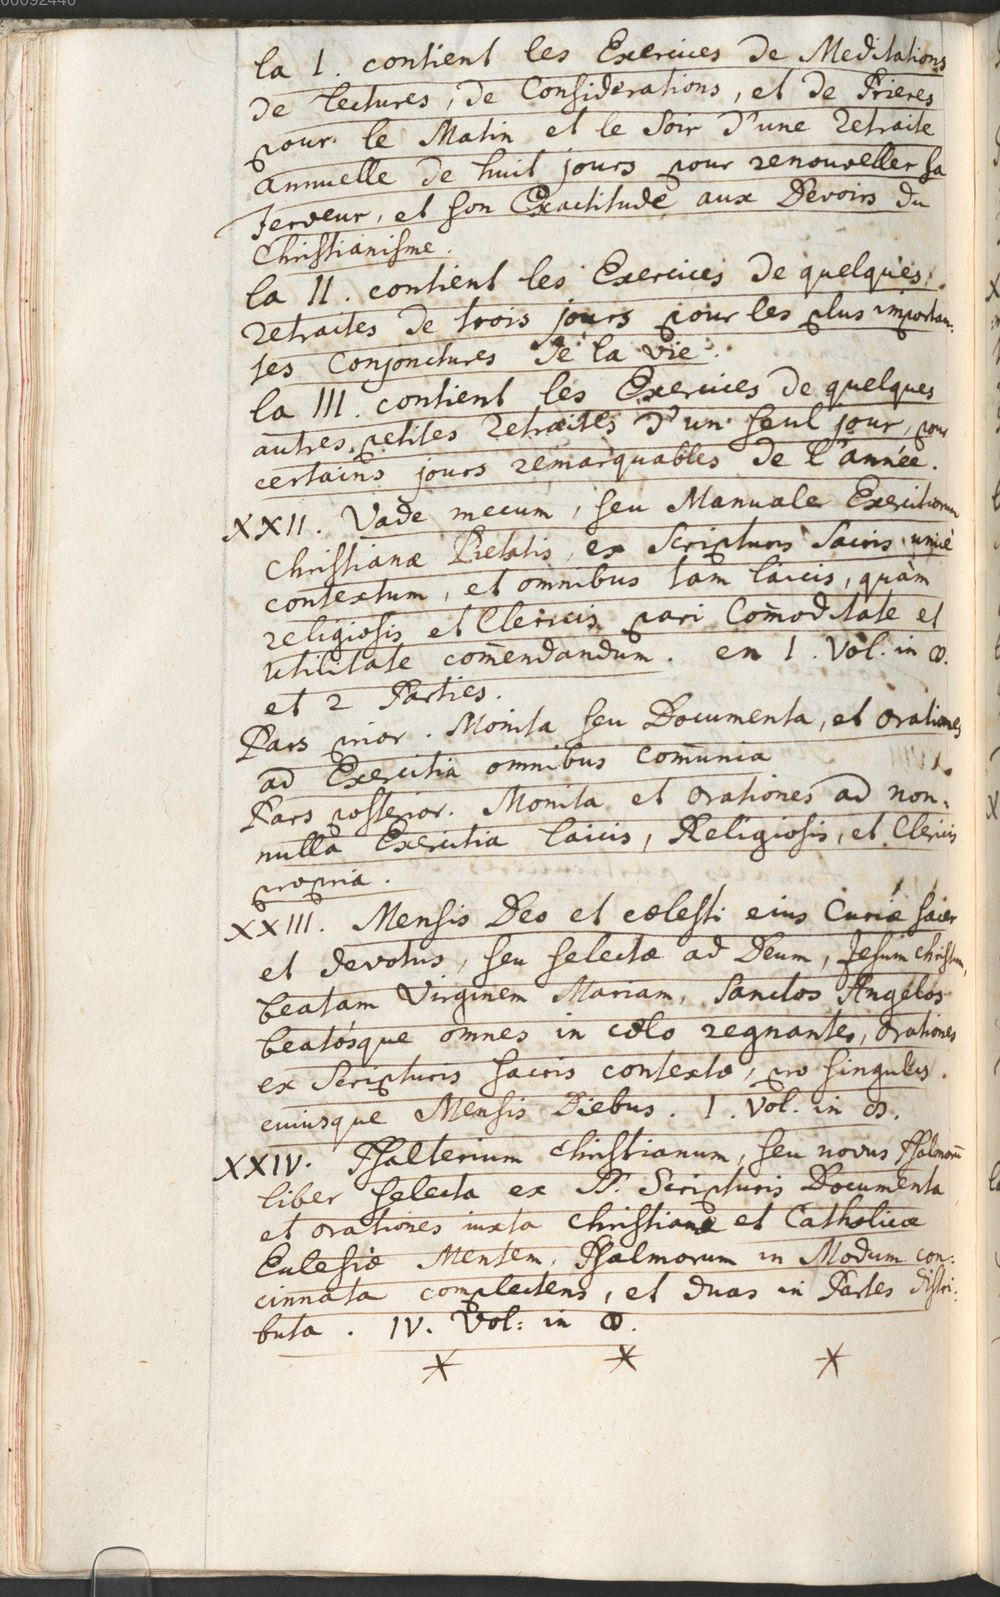 00092446
la I. contient les Exercices de Meditations
de Lectures, de Considerations, et de Prieres
pour le Matin et le Soir d'une Retraite
annuelle de huit jours pour renouveller sa
ferveur, et son Exactitude aux Devoirs du
Christianisme.
la II. contient les Exercices de quelques
retraites de trois jours pour les plus importan:
tes Conjonctures de la Vie.
la III. contient les Exercices de quelques
autres petites Retraites d'un seul jour, pour
certains jours remarquables de l'année.
XXII. Vade mecum, seu Manuale Exercitiorum
Christianæ Pietatis, ex Scripturis Sacris unicè
contextum, et omnibus tam laicis, quàm
religiosis et Clericis pari Com̄oditate et
Utilitate com̄endandum. en 1. Vol. in
et 2 Parties.
Pars prior. Monita seu Documenta, et orationes
ad Exercitia omnibus com̄unia
Pars posterior. Monita et orationes ad non-
nulla Exercitia laicis, Religiosis, et Clericis
propria.
XXIII. Mensis Deo et cœlesti eius Curiæ sacer
et devotus, seu selectæ ad Deum, Jesum Christum,
beatam Virginem Mariam, Sanctos Angelos
beatósque omnes in cœlo regnantes, orationes
ex Scripturis sacris contextæ, pro singulis
cuiusque Mensis Diebus. 1. Vol. in
XXIV. Psalterium Christianum, seu novus Psalmorū
liber selecta ex SS. Scripturis Documenta
et orationes iuxta Christianæ et Catholicæ
Ecclesiæ Mentem, Psalmorum in Modum con:
cinnata complectens, et duas in Partes distri:
buta. IV. Vol: in